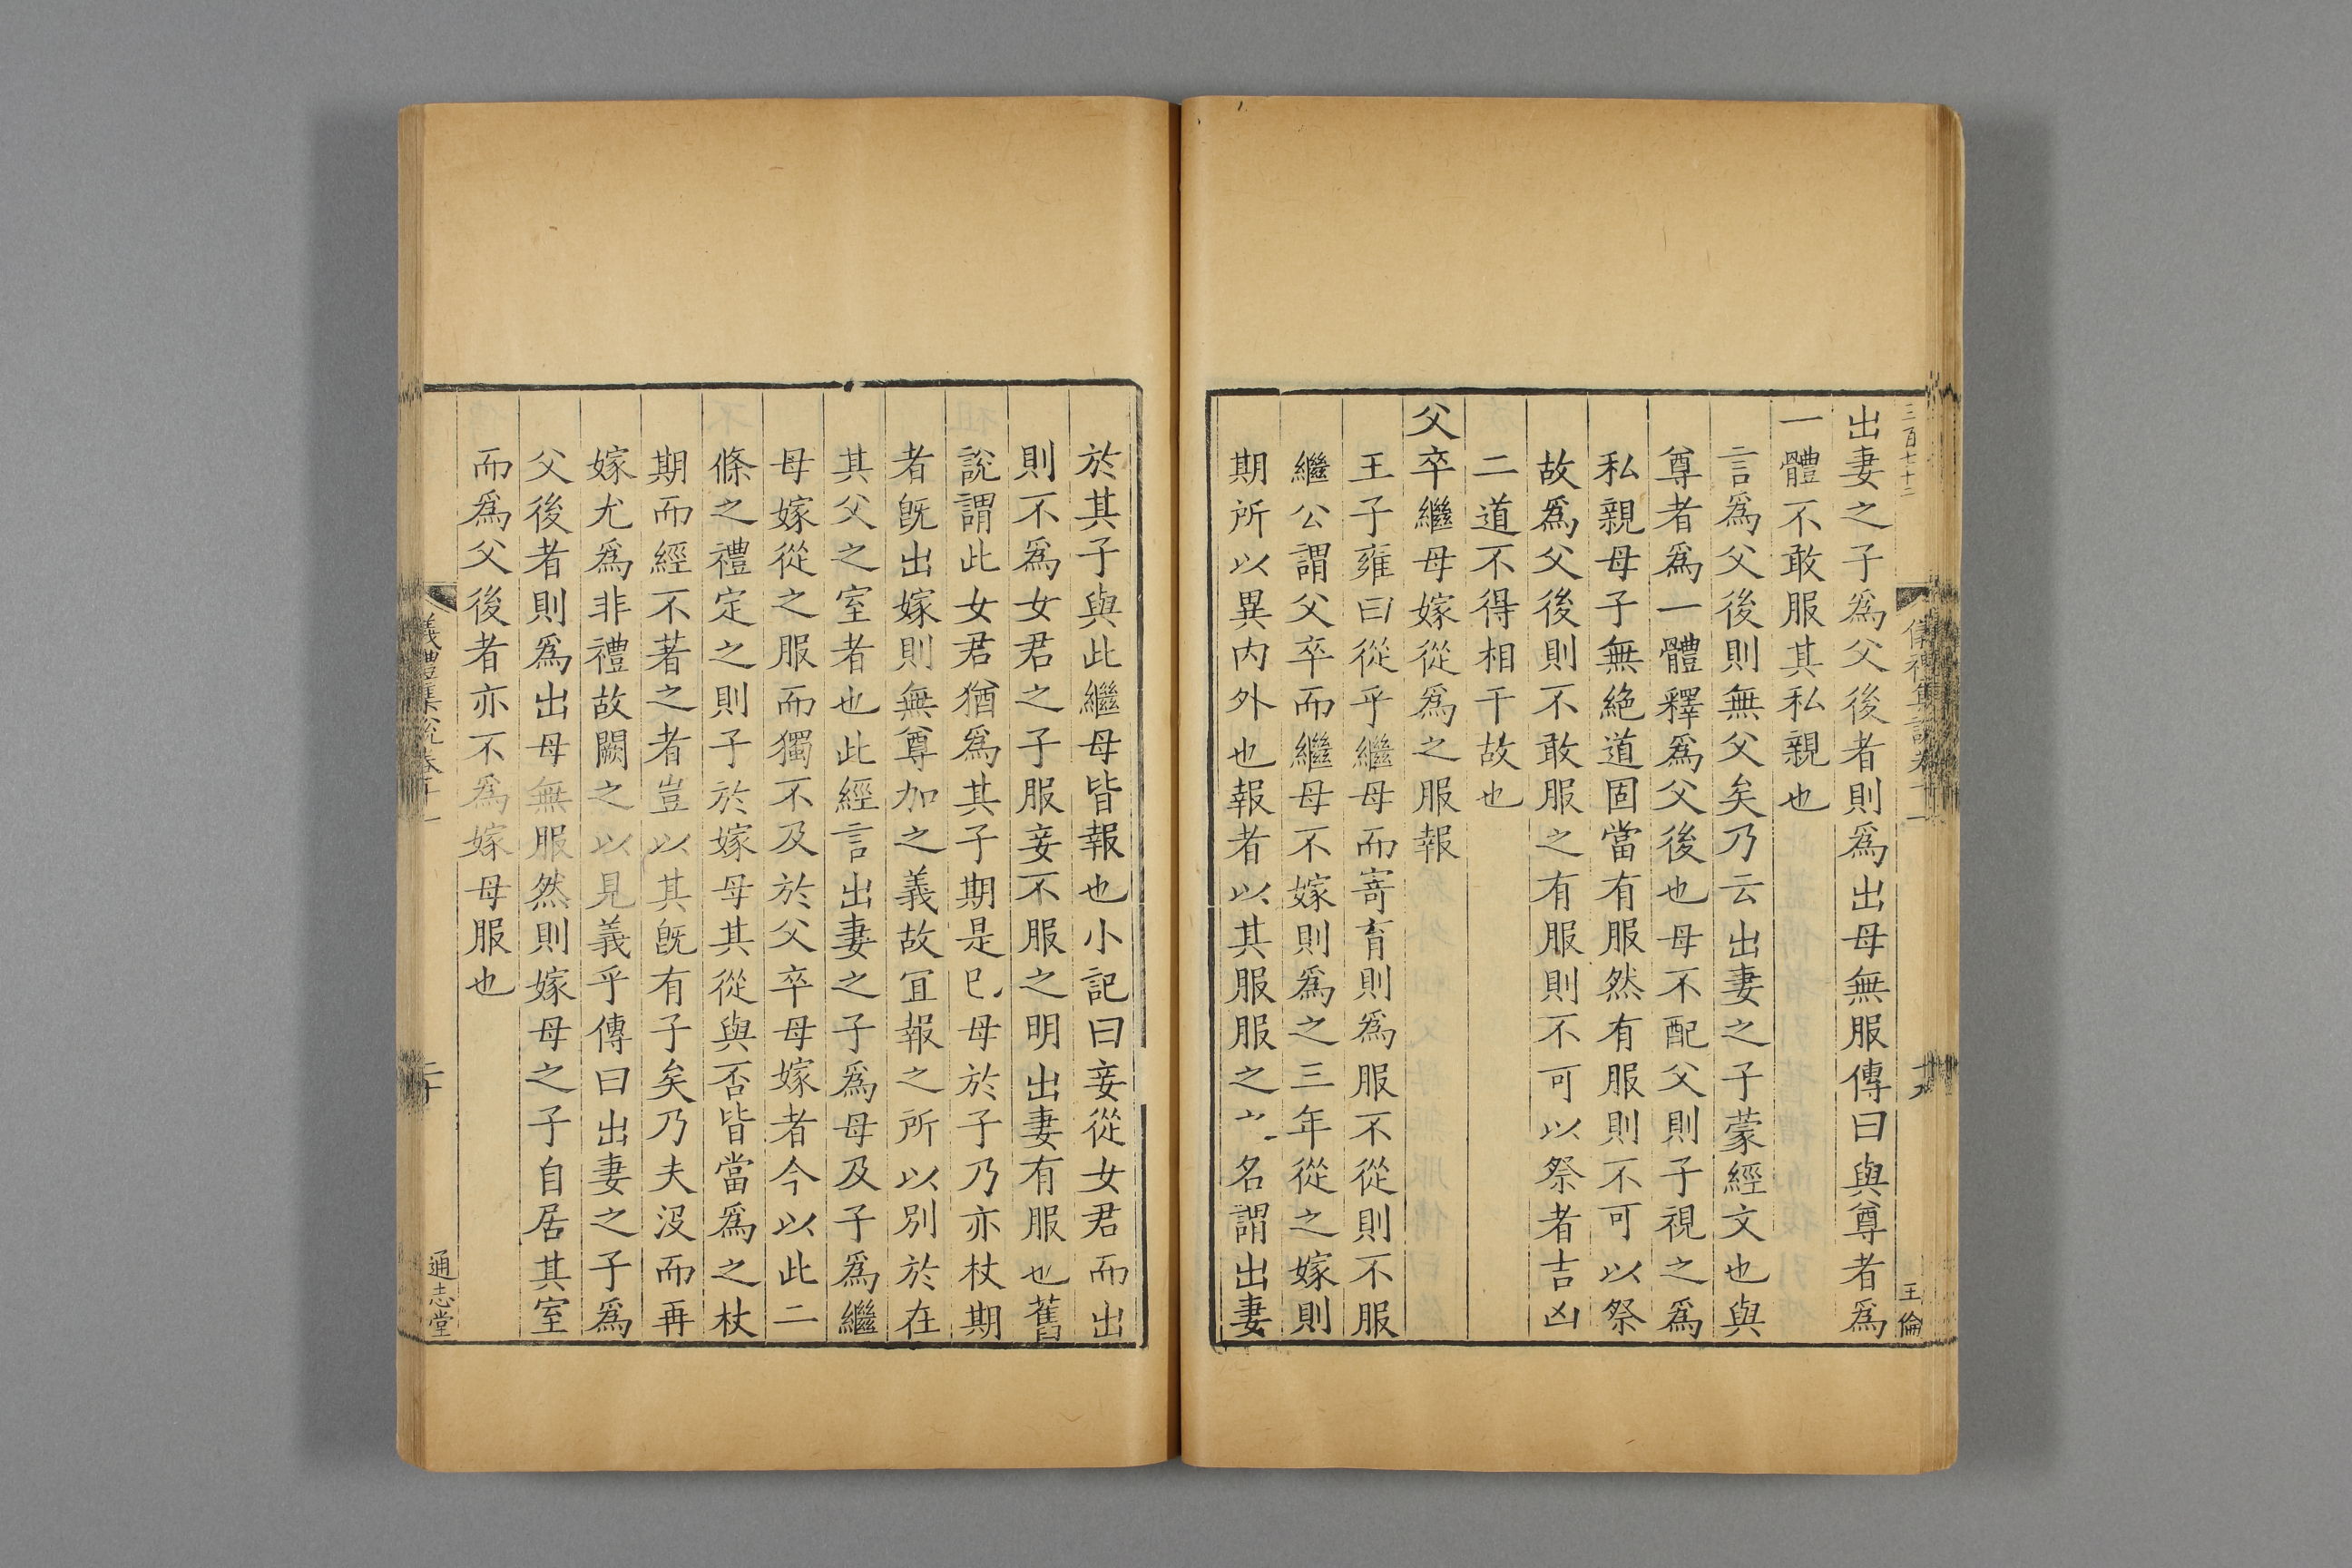 三百七十二
出妻之子爲父後者則爲出母無服傳曰與尊者爲
一體不敢服其私親也
言爲父後則無父矣乃云出妻之子蒙經文也與
尊者爲一體釋爲父後也母不配父則子視之爲
私親母子無絶道固當有服然有服則不可以祭
故爲父後則不敢服之有服則不可以祭者吉凶
二道不得相干故也
父卒繼母嫁從爲之服報
王子雍曰從乎繼母而寄育則爲服不從則不服
繼公謂父卒而繼母不嫁則爲之三年從之嫁則
期所以異内外也報者以其服服之名謂出妻
王倫
於其子與此繼母皆報也小記曰妾從女君而出
則不爲女君之子服妾不服之明出妻有服也舊
說謂此女君猶爲其子期是已母於子乃亦杖期
者既出嫁則無尊加之義故冝報之所以別於在
其父之室者也此經言出妻之子爲母及子爲繼
母嫁從之服而獨不及於父卒母嫁者今以此二
條之禮定之則子於嫁母其從與否皆當爲之杖
期而經不著之者豈以其既有子矣乃夫没而再
嫁尤爲非禮故闕之以見義乎傳曰出妻之子爲
父後者則爲出母無服然則嫁母之子自居其室
而爲父後者亦不爲嫁母服也
通志堂